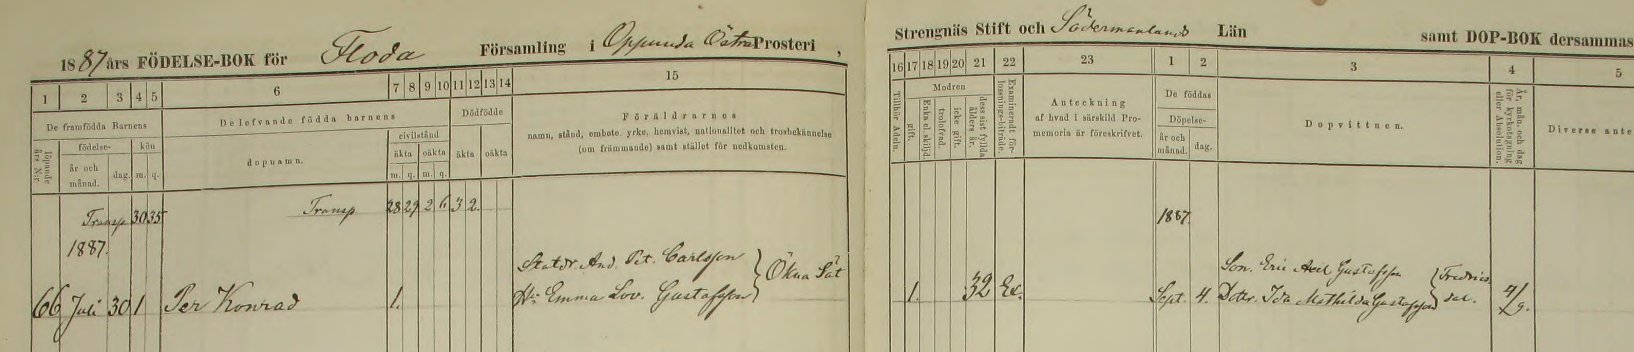 1887 års FÖDELSE-BOK för Floda Församling i Oppunda Östra Prosteri,
Strengnäs Stift och Södermanlands Län samt DOP-BOK dersammas
1 2 3 4 5 6 7 8 9 10 11 12 13 14 15
16 17 18 19 20 21 22 23 1 2 3 4 5
De framfödda Barnens
löpande års N:r.
födelse-
år och månad.
dag.
kön
m. q.
De lefvande födda barnens
dopnamn.
civilstånd
äkta oäkta
m. q. m. q.
Dödfödde
äkta oäkta
Föräldrarnes
namn, stånd, embete, yrke, hemvist, nationalitet och trosbekännelse
(om främmande) samt stället för nedkomsten.
Tillhör Adeln.
Modren
gift.
Enka el. skiljd.
trolofvad.
icke gift.
dess sist fyllda ålders år.
Examineradt förlossnings-biträde.
Anteckning
af hvad i särskild Pro-
memoria är föreskrifvet.
De föddas
Döpelse-
år och månad.
dag.
Dopvittnen.
År, mån. och dag för kyrkotagning eller Absolution.
Diverse ante
Transp 30 35 Transp 28 29 2 6 3 2
1887.
1887
Statdr. And. Pet. Carlsson
Hu Emma Lov. Gustafsson
Ökna Sät
66 Juli 30 1 Per Konrad 1.
1. 32 Ex. Sept. 4.
Son. Eric Axel Gustafsson
Dotter. Ida Mathilda Gustafsson
Fredrics
dal.
4/9.